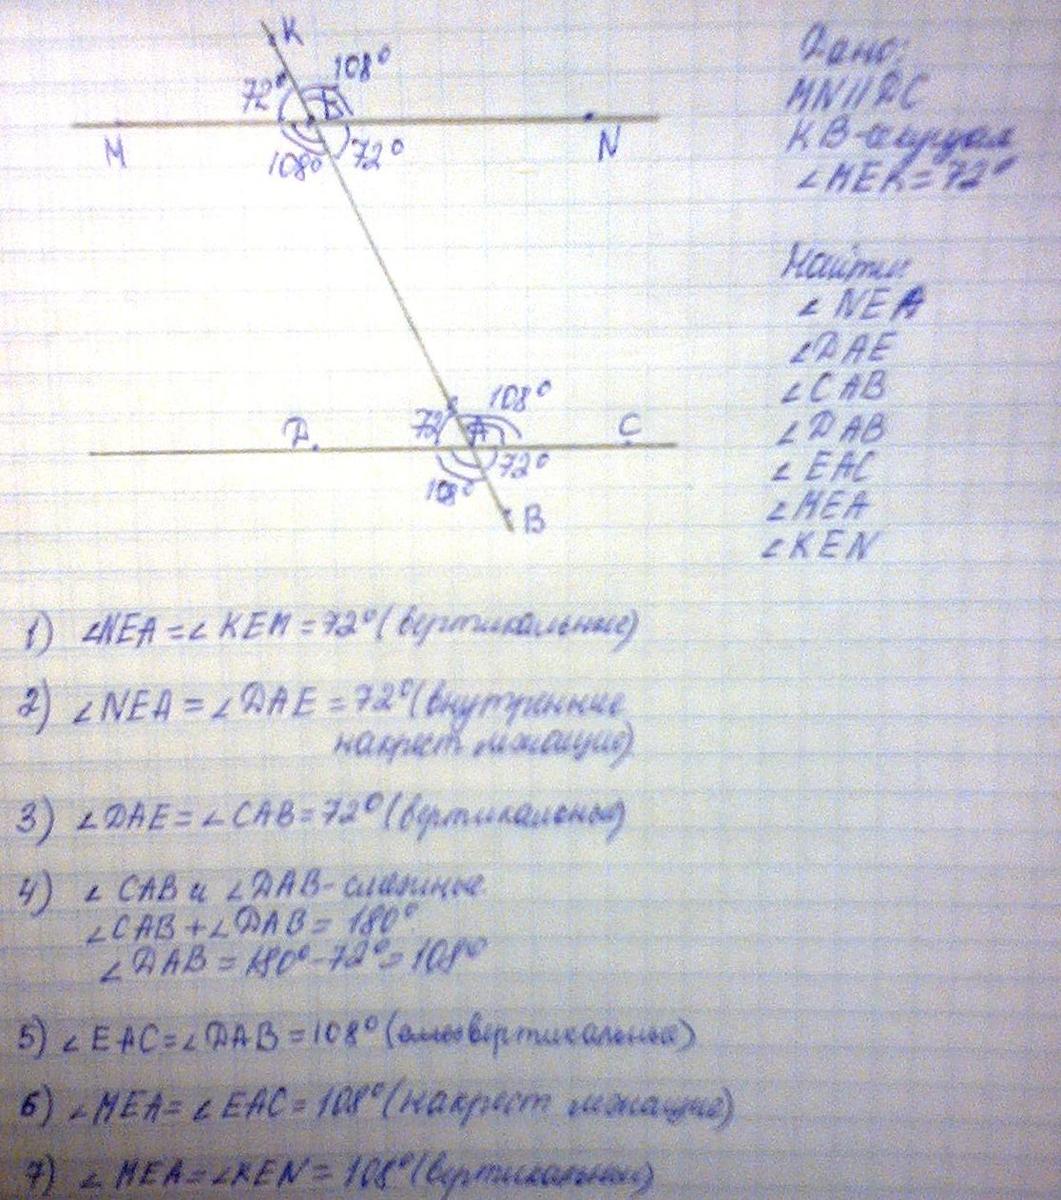 K
108°
72°
E
M
N
108°
72°
Дано:
MN||DC
KB-секущая
∠MEK=72°
Найти
∠NEA
∠DAE
∠CAB
∠DAB
∠EAC
∠MEA
∠KEN
108°
72
A
C
D
72°
108°
B
1) ∠NEA=∠KEM=72°(вертикальные)
2) ∠NEA=∠DAE=72°(внутренние
накрест лежащие)
3) ∠DAE=∠CAB=72°(вертикальные)
4) ∠CAB и ∠DAB-смежные
∠CAB+∠DAB=180°
∠DAB=180°-72°=108°
5) ∠EAC=∠DAB=108°(вертикальные)
6) ∠MEA=∠EAC=108°(накрест лежащие)
7) ∠MEA=∠KEN=108°(вертикальные)